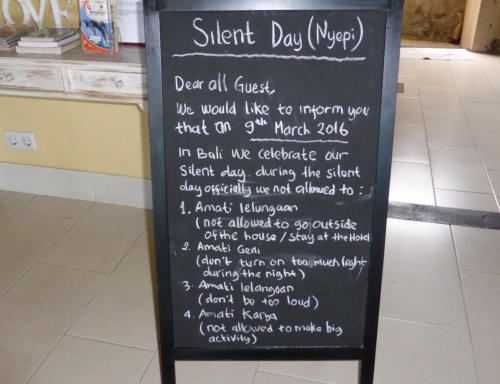 LOVE
Silent Day (Nyepi)
Dear all Guest,
We would like to inform you
that on 9th March 2016
In Bali we celebrate our
Silent day. during the silent
day officially we not allowed to :
1. Amati lelungaan
(not allowed to go outside
of the house / stay at the Hotel
2. Amati Geni
(don't turn on too much light
during the night)
3. Amati lelangoan
(don't be too loud)
4. Amati Karya
(not allowed to make big
activity)